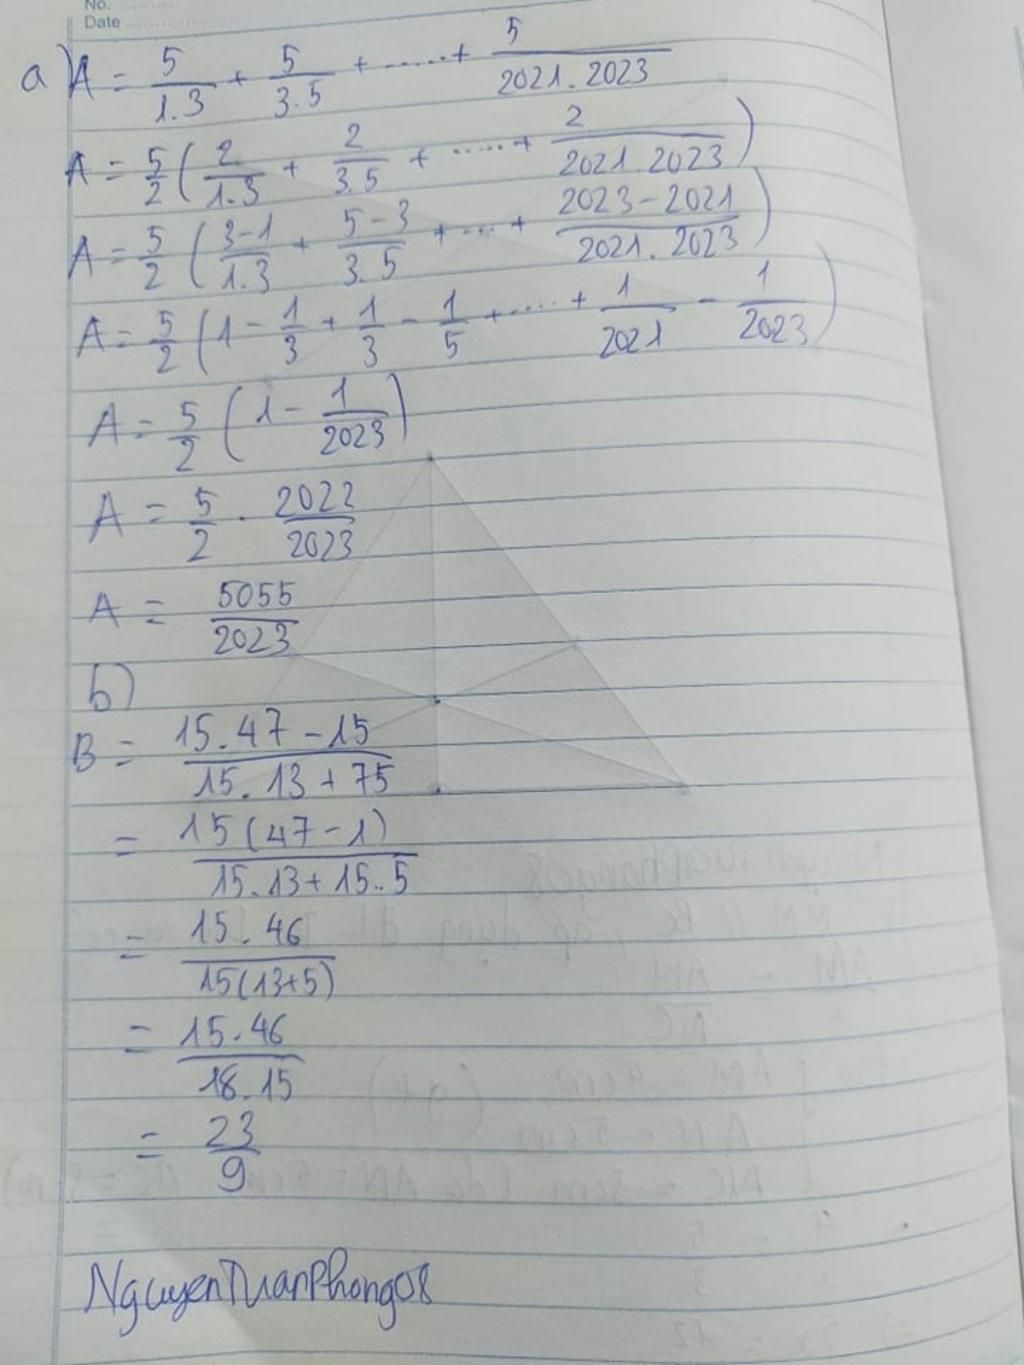 No.
Date
a) A = 5/1.3 + 5/3.5 + ...... + 5/2021.2023
A = 5/2 ( 2/1.3 + 2/3.5 + ...... + 2/2021.2023 )
A = 5/2 ( 3-1/1.3 + 5-3/3.5 + ... + 2023-2021/2021.2023 )
A = 5/2 ( 1 - 1/3 + 1/3 - 1/5 + ..... + 1/2021 - 1/2023 )
A = 5/2 ( 1 - 1/2023 )
A = 5/2 . 2022/2023
A = 5055/2023
b)
B = 15.47 - 15/15.13 + 75
= 15(47-1)/15.13 + 15.5
= 15.46/15(13+5)
= 15.46/18.15
= 23/9
NguyenTuanPhong08